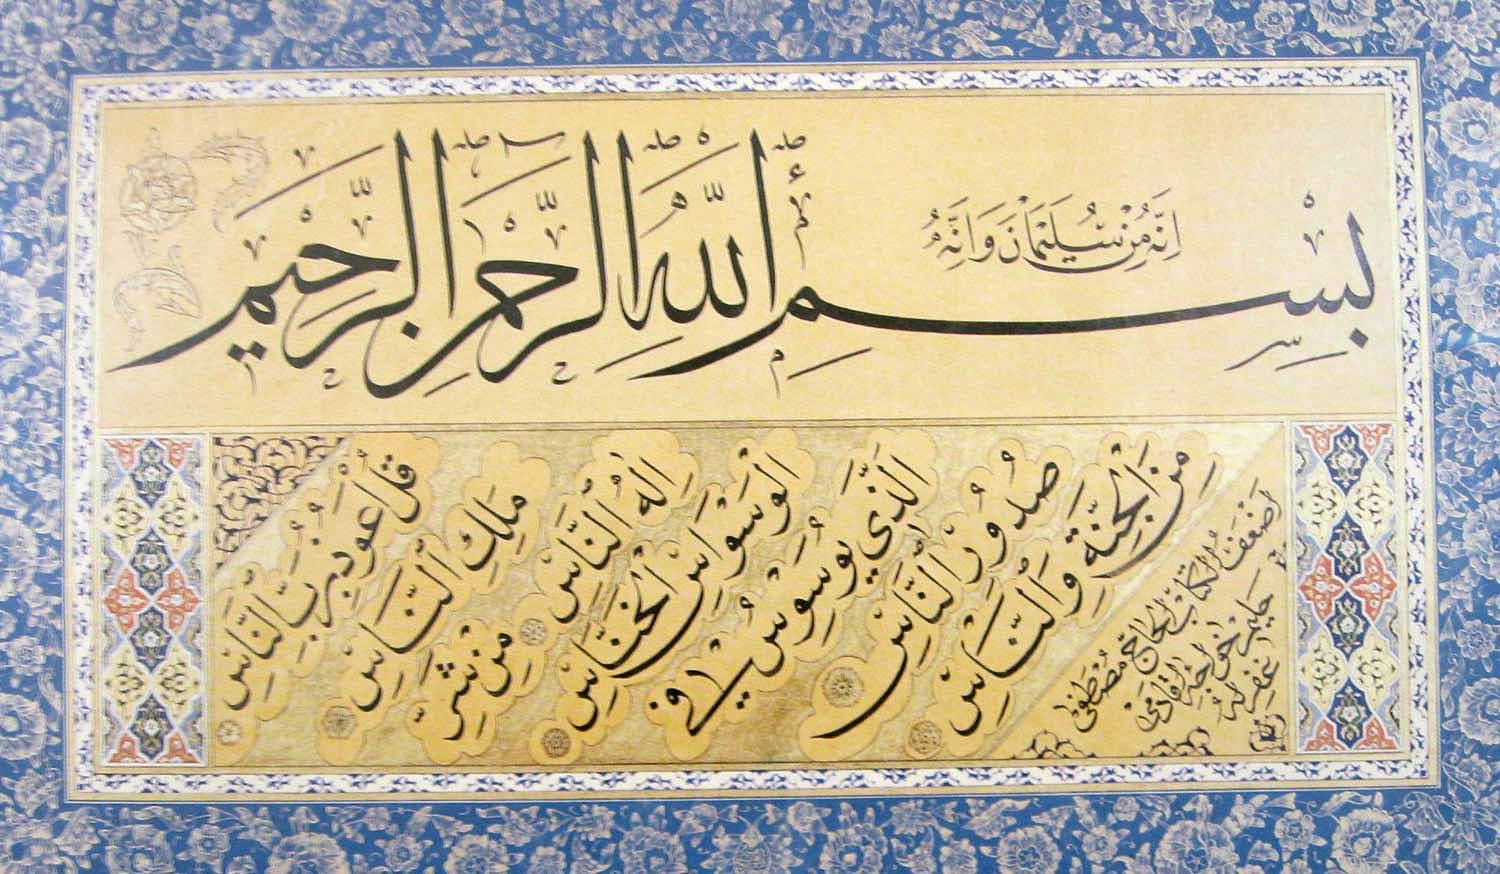 اِنَّهُ مِنْ سُلَيْمَانَ وَاِنَّهُ
بِسْمِ اللّٰهِ الرَّحْمٰنِ الرَّحِيْمِ
قُلْ أَعُوْذُ بِرَبِّ النَّاسِ
مَلِكِ النَّاسِ
اِلٰهِ النَّاسِ
مِنْ شَرِّ
الْوَسْوَاسِ الْخَنَّاسِ
الَّذِي يُوَسْوِسُ فِي
صُدُوْرِ النَّاسِ
مِنَ الْجِنَّةِ وَالنَّاسِ
اضعف الكتاب الحاج مصطفى
حليم
غفر